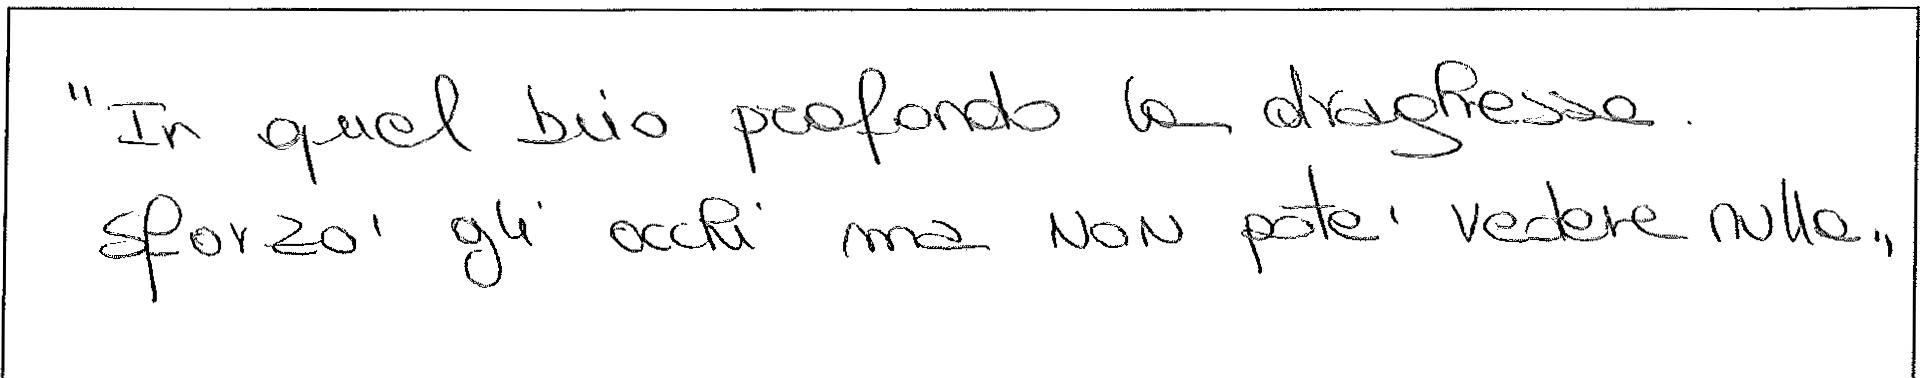 "In quel buio profondo la draghessa.
sforzo' gli occhi ma NON pote' vedere nulla„